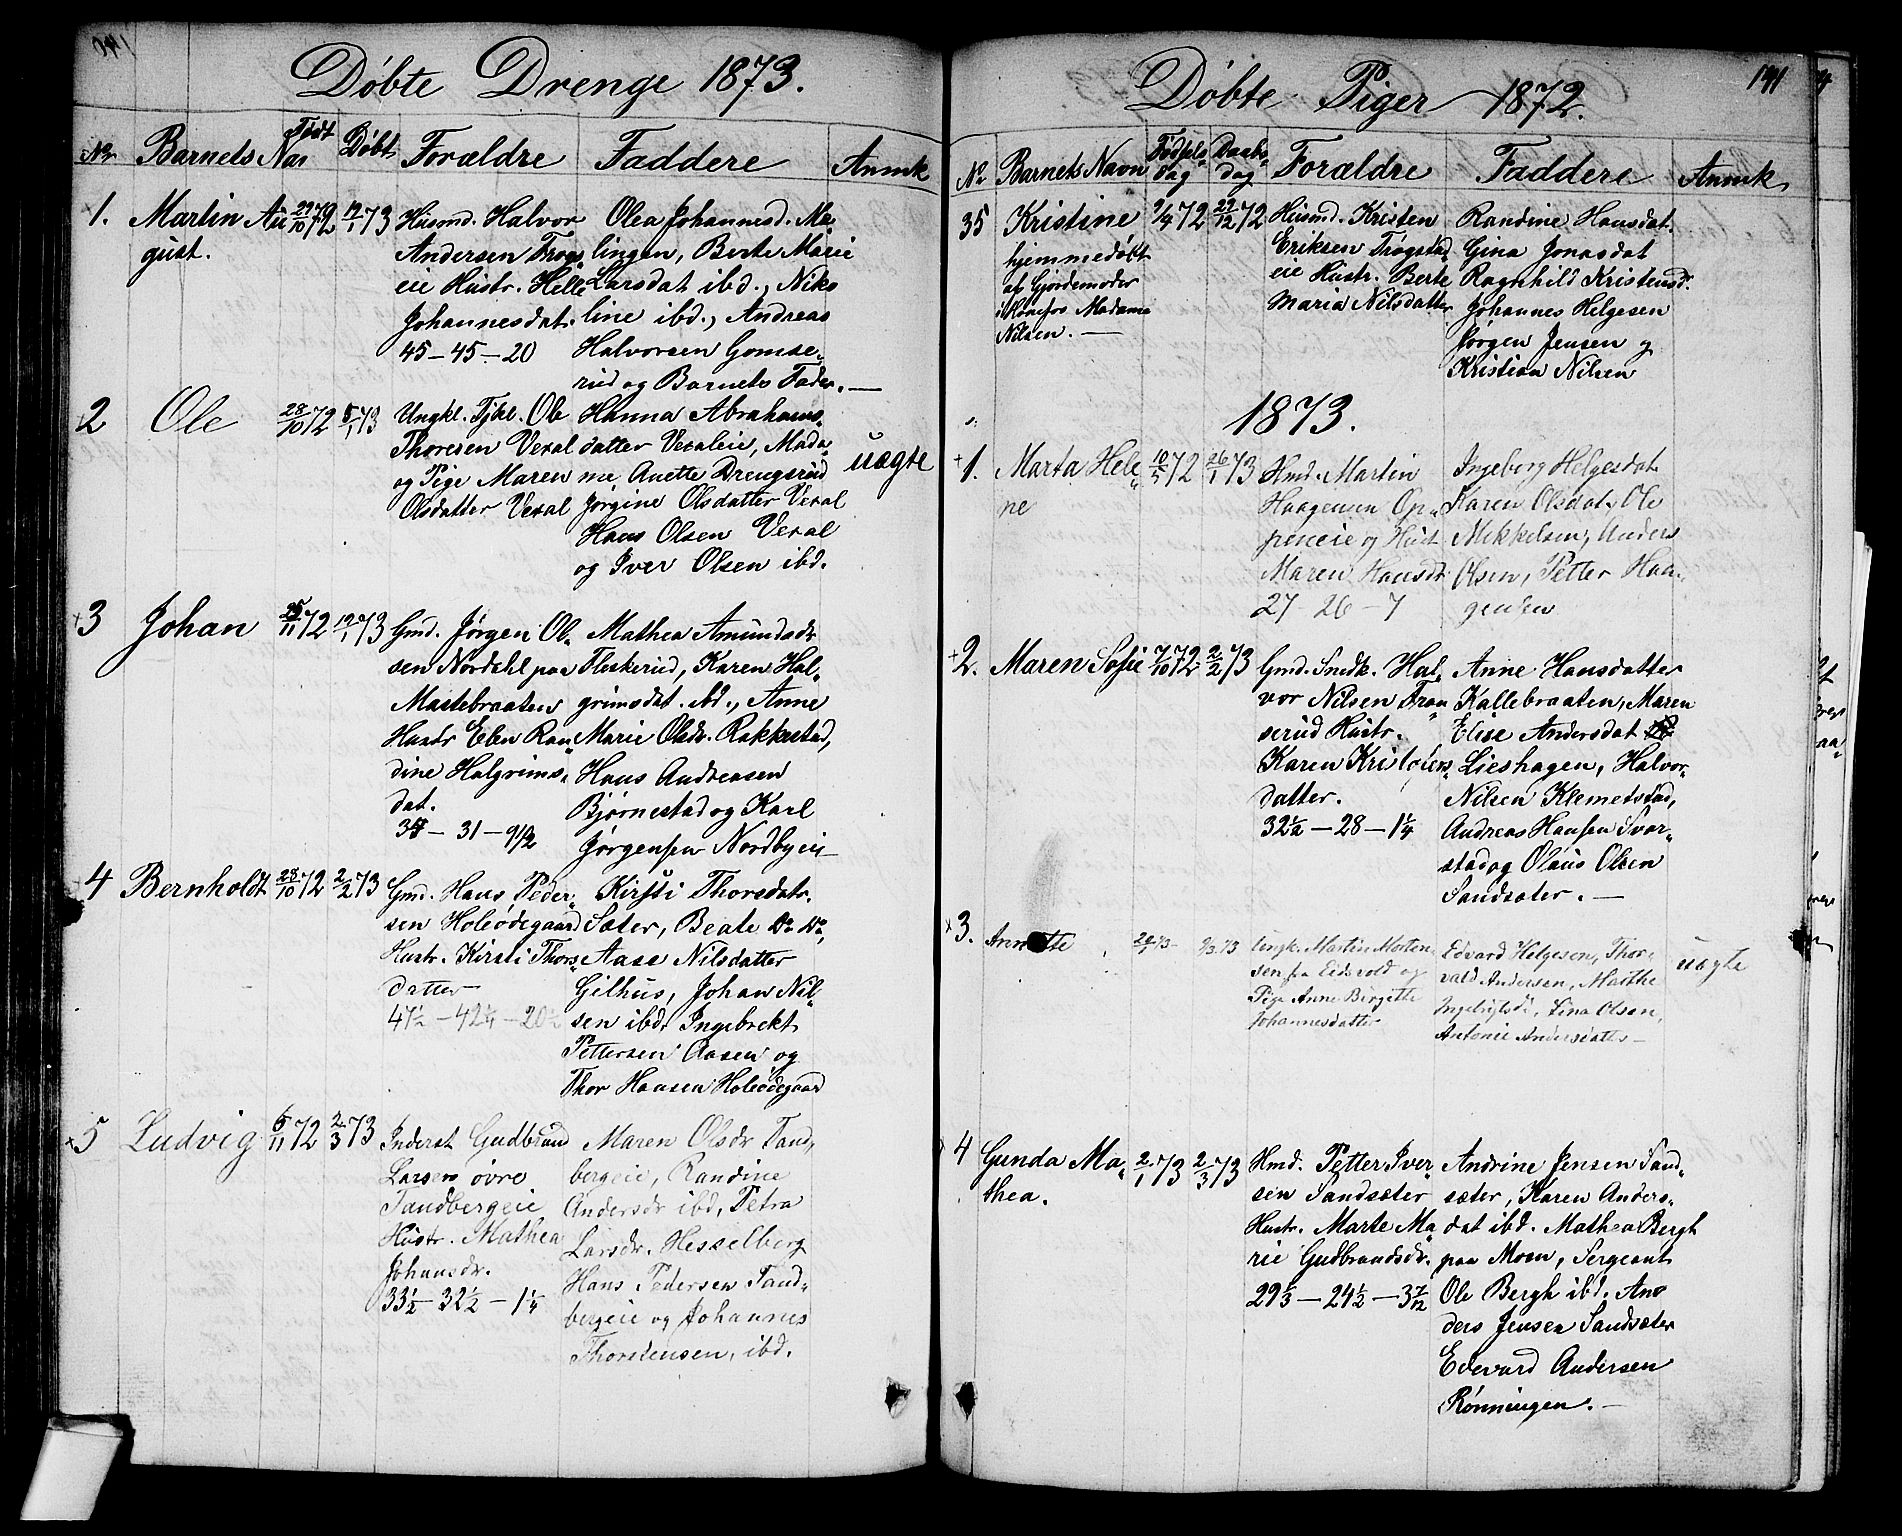 Døbte Drenge 1873.
No Barnets Nav Født Døbt Forældre Faddere Anmk
1. Martin Au
gust.
29/10 72 19/1 73
Husmd. Halvor
Andersen Trogs
eie Hustr. Helle
Johannesdat.
45 – 45 – 20
Olea Johannesd. Mæ
lingen, Berte Marie
Larsdat ibd., Niko
line ibd., Andreas
Halvorsen Gomse„
rud og Barnets Fader. —
2 Ole 28/10 72 5/1 73
Ungkl. Tjkl. Ole
Thoresen Vexal
og Pige Maren
Olsdatter Vexal
Hanna Abrahams„
datter Vexaleie, Mada„
me Anette Drengsrud
Jørgine Olsdatter Vexal
Hans Olsen Vexal
og Iver Olsen ibd.
uægte
3 Johan 25/11 72 19/1 73
Gmd. Jørgen Ol„
sen Nordahl paa
Mastebraaten
Hustr Elen Ran„
dine Halgrims„
dat.
– 31 – 9 1/2
Mathea Amundsdr
Fleskerud, Karen Hal„
grimsdat. ibd., Anne
Marie Olsdr. Rakkestad,
Hans Andreasen
Bjørnestad og Karl
Jørgensen Nordbyeie
4 Bernholdt 28/10 72 2/2 73
Gmd. Hans Peder„
sen Holeødegaard
Hustr. Kirsti Thors„
datter
47 1/2 – 42 1/4 – 20 1/2
Kirsti Thorsdatr.
Sæter, Beate Do Do,
Aase Nilsdatter
Gilhus, Johan Nil„
sen ibd. Ingebrekt
Pettersen Aasen og
Thor Hansen Holeødegaard
5 Ludvig 6/11 72 2/3 73
Inderst Gudbrand
Larsen øvre
Tandbergeie
Hustr. Mathea
Johansdr.
33 1/2 – 32 1/2 – 1 1/4
Maren Olsdr Tand„
bergeie, Randine
Andersdr ibd, Petra
Larsdr. Hesselberg
Hans Pedersen Tand„
bergeie og Johannes
Thorstensen, ibd.
141
Døbte Piger 1872.
No Barnets Navn Fødsels„ dag Daabs„ dag Forældre Faddere Anmk
35 Kristine
hjemmedøbt
af Gjordemoder
i Hønefos Madame
Nilsen. —
9/4 72 29/12 72
Husmd. Kristen
Eriksen Trøgstad
eie Hustr. Berte
Maria Nilsdatter
Randine Hansdat.
Gina Jonasdat
Ragnhild Kristensdr.
Johannes Helgesen
Jørgen Jensen og
Kristian Nilsen
1873.
1. Marta Hele„
ne
10/5 72 26/1 73
Hmd. Martin
Haagensen Op„
peneie og Hust
Maren Hansdt
27 – 26 – 7
Ingeborg Helgesdat
Karen Olsdat, Ole
Mikkelsen, Anders
Olsen, Petter Haa„
gensen
2. Maren Sofie 7/10 72 2/2 73
Gmd. Snedk. Hal„
vor Nilsen Tran„
serud Hustr.
Karen Kristofers„
datter.
32 1/2 – 28 – 1 1/4
Anne Hansdatter
Kallebraaten, Maren
Elise Andersdat
Lieshagen, Halvor„
Nilsen Klemetstad,
Andreas Hansen Svar„
stad og Olaus Olsen
Sandsæter. —
3. Annette 73 – 9/3 73
Ungk. Martin Morten„
sen fra Eidsvold og
Pige Anne Birgette
Johannesdatter
Edvard Helgesen, Thor„
vald Andersen, Marthe
Ingebrigtsdr, Lina Olsen,
Antonie Andersdatter –
uægte
4 Gunda Ma„
thea.
2/1 73 2/3 73
Hmd. Petter Iver„
sen Sandsæter
Hustr. Marte Ma„
rie Gudbrandsdr.
29 1/3 – 24 1/2 – 3 7/12
Andrine Jensen Sand„
sæter, Karen Anders„
dat ibd. Mathea Bergh
paa Moen, Sergeant
Ole Bergh ibd. An„
ders Jensen Sandsæter
Edevard Andersen
Rønningen. —